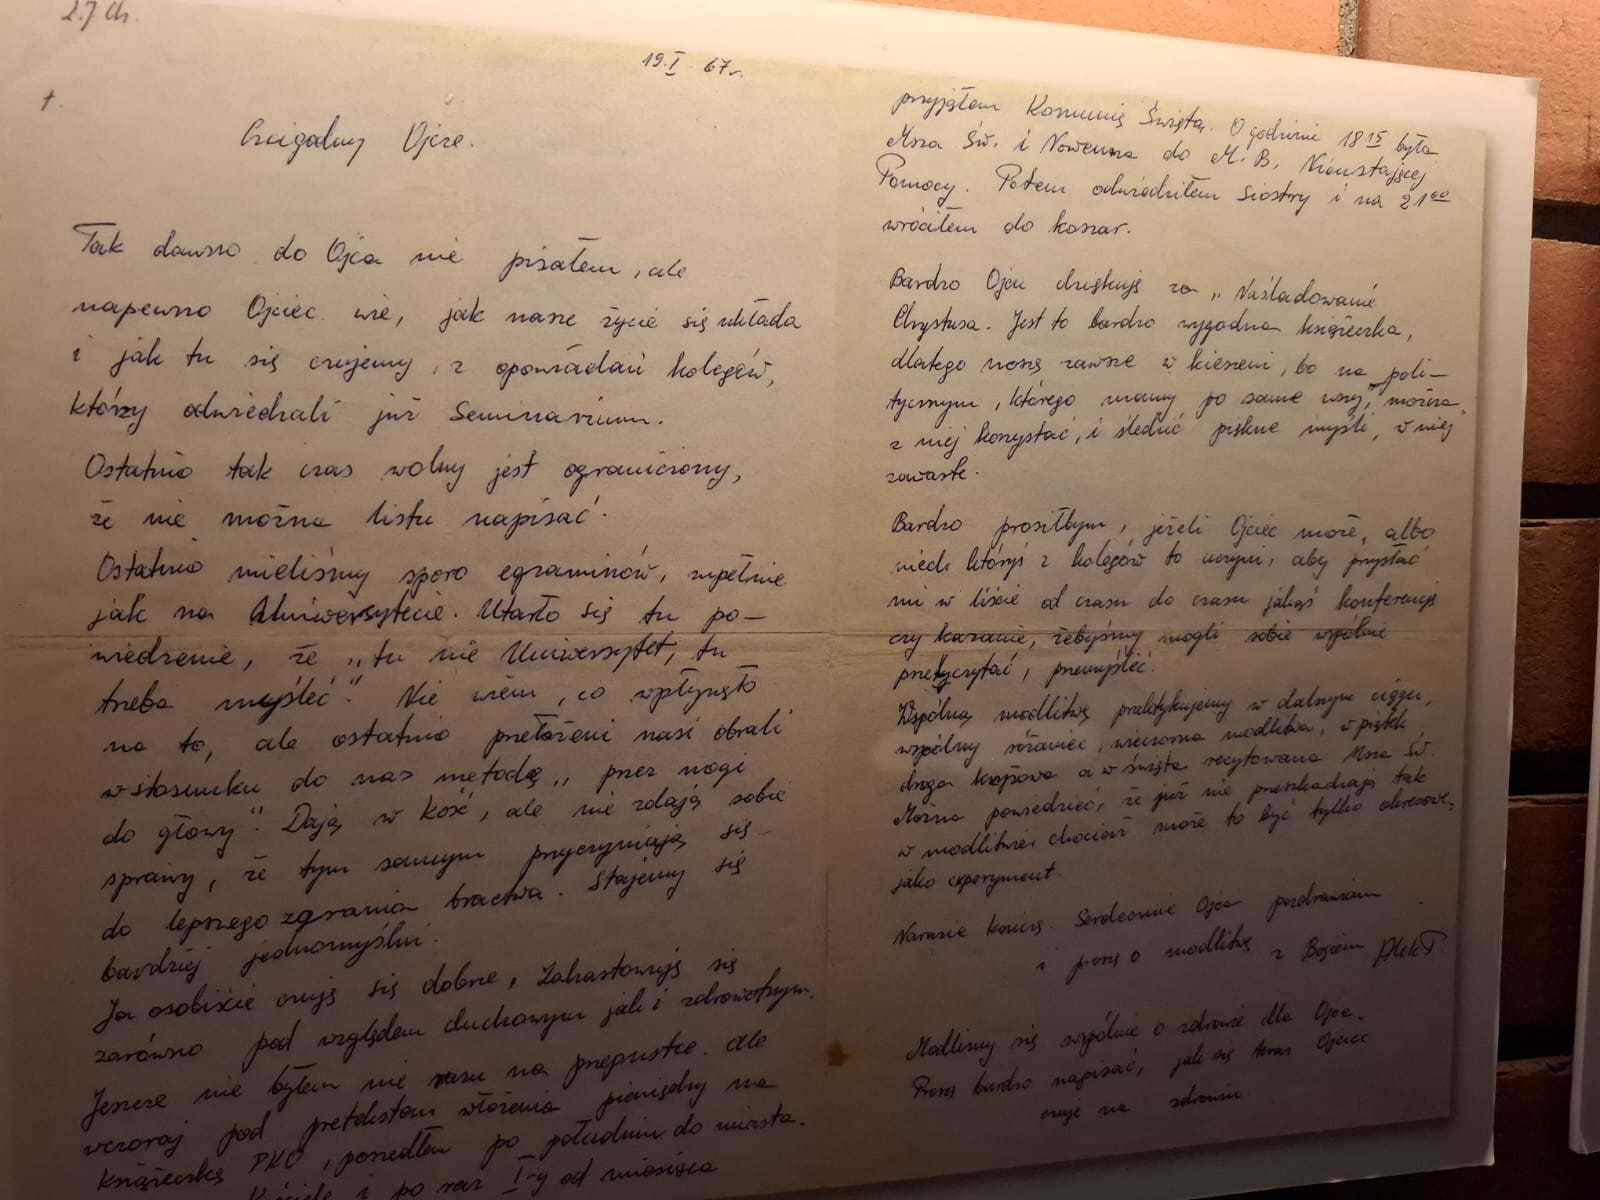 19.I 67r.
+.
Czcigodny Ojcze.
Tak dawno do Ojca nie pisałem, ale
napewno Ojciec wie, jak nasze życie się układa
i jak tu się czujemy, z opowiadań kolegów,
którzy odwiedzali już Seminarium.
Ostatnio tak czas wolny jest ograniczony,
że nie można listu napisać.
Ostatnio mieliśmy sporo egzaminów, zupełnie
jak na Uniwersytecie. Utarło się tu po-
wiedzenie, że „tu nie Uniwersytet, tu
trzeba myśleć". Nie wiem, co wpłynęło
na to, ale ostatnio przełożeni nasi obrali
w stosunku do nas metodę „przez nogi
do głowy". Dają w kość, ale nie zdają sobie
sprawy, że tym samym przyczyniają się
do lepszego zgrania bractwa. Stajemy się
bardziej jednomyślni.
Ja osobiście czuję się dobrze, zahartowuję się
zarówno pod względem duchowym jak i zdrowotnym.
Jeszcze nie byłem nie razu na przepustce. Ale
wczoraj pod pretekstem włożenia pieniędzy na
książeczkę PKO, poszedłem po południu do miasta.
i po raz I-y od miesiąca
przyjąłem Komunię Świętą. O godzinie 18 15 była
Msza Św. i Nowenna do M.B. Nieustającej
Pomocy. Potem odwiedziłem Siostry i na 21 00
wróciłem do koszar.
Bardzo Ojcu dziękuję za „Naśladowanie
Chrystusa. Jest to bardzo wygodna książeczka,
dlatego noszę zawsze w kieszeni, bo na poli-
tycznym, którego mamy po same uszy, można
z niej korzystać, i śledzić piękne myśli, w niej
zawarte.
Bardzo prosiłbym, jeżeli Ojciec może, albo
niech któryś z kolegów to uczyni, aby przysłać
mi w liście od czasu do czasu jakąś konferencję
czy kazanie, żebyśmy mogli sobie wspólnie
przeczytać, przemyśleć.
Wspólną modlitwę praktykujemy w dalszym ciągu,
wspólny różaniec, wieczorna modlitwa, w piątek
droga krzyżowa a w święta recytowana Msza Św.
Można powiedzieć, że już nie przeszkadzają tak
w modlitwie, chociaż może to być tylko okresowe,
jako experyment.
Narazie kończę. Serdecznie Ojca pozdrawiam
i proszę o modlitwę z Bogiem
Modlimy się wspólnie o zdrowie dla Ojca.
Proszę bardzo napisać, jak się teraz Ojciec
czuje na zdrowiu